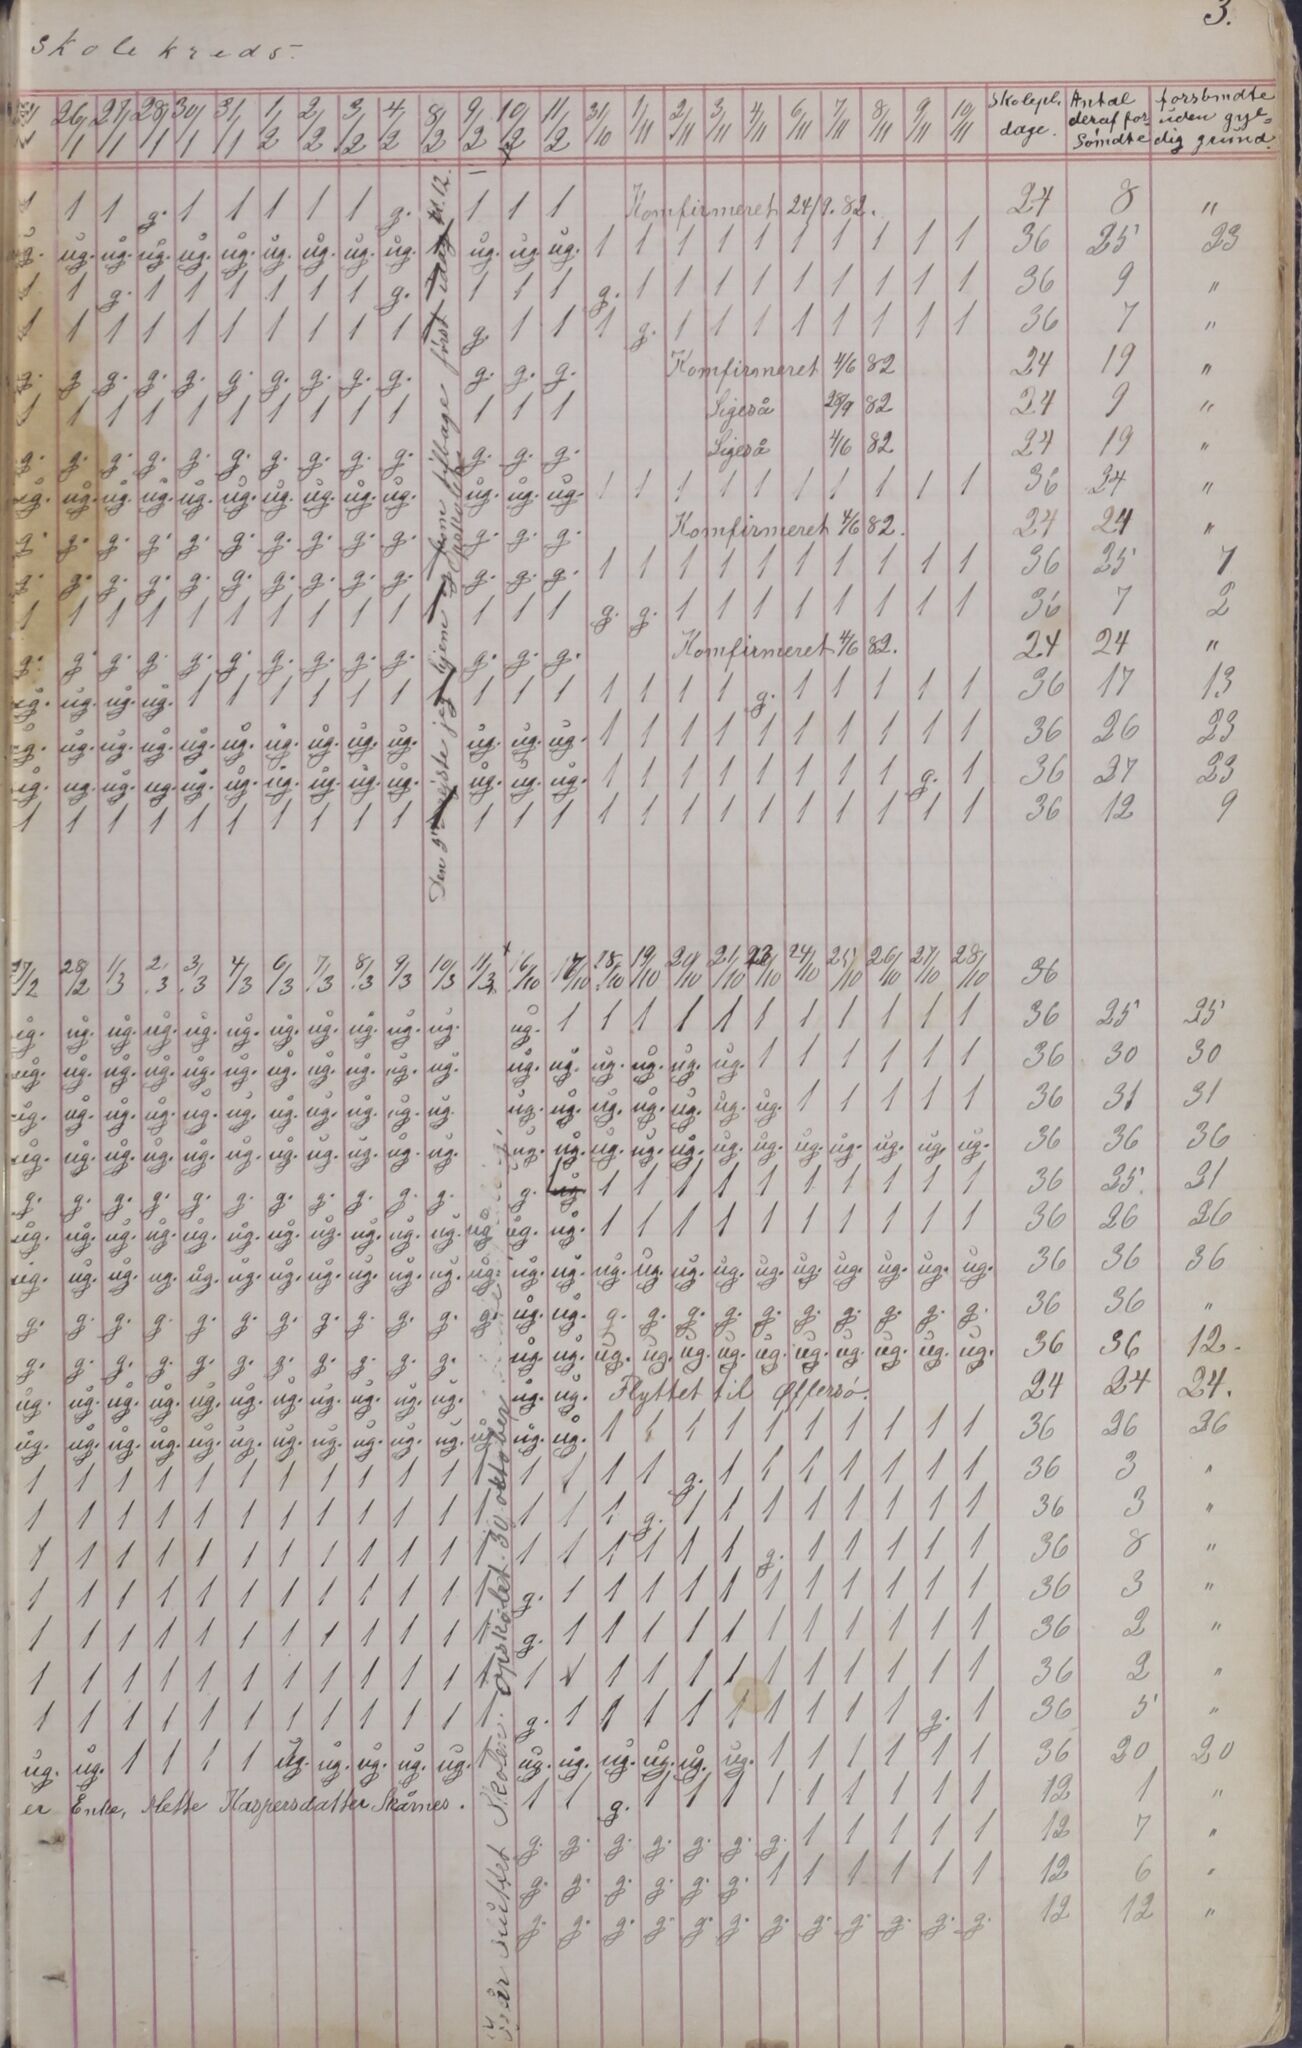 3.
Skolekreds.
26/1 27/1 28/1 30/1 31/1 1/2 2/2 3/2 4/2 8/2 9/2 10/2 11/2 31/10 1/11 2/11 3/11 4/11 6/11 7/11 8/11 9/11 10/11 Skolepl. dage. Antal deraf forsömdte forsömdte uden gyldig grund.
1 1 1 g. 1 1 1 1 1 g. 1 1 1 Komfirmeret 24/9. 82. 24 8 "
ug. ug. ug. ug. ug. ug. ug. ug. ug. ug. ug. ug. ug. 1 1 1 1 1 1 1 1 1 1 36 25 23
1 1 g. 1 1 1 1 1 1 g. 1 1 1 g. 1 1 1 1 1 1 1 1 1 36 9 "
1 1 1 1 1 1 1 1 1 1 g. 1 1 1 g. 1 1 1 1 1 1 1 1 36 7 "
g. g. g. g. g. g. g. g. g. g. g. g. g. Komfirmeret 4/6 82 24 19 "
1 1 1 1 1 1 1 1 1 1 1 1 1 Ligeså 28/9 82 24 9 "
g. g. g. g. g. g. g. g. g. g. g. g. g. Ligeså 4/6 82 24 19 "
ug. ug. ug. ug. ug. ug. ug. ug. ug. ug. ug. ug. ug. 1 1 1 1 1 1 1 1 1 1 36 24 "
g. g. g. g. g. g. g. g. g. g. g. g. g. Komfirmeret 4/6 82. 24 24 "
g. g. g. g. g. g. g. g. g. g. g. g. g. 1 1 1 1 1 1 1 1 1 1 36 25 7
1 1 1 1 1 1 1 1 1 1 1 1 1 g. g. 1 1 1 1 1 1 1 1 36 7 2
g. g. g. g. g. g. g. g. g. g. g. g. g. Komfirmeret 4/6 82. 24 24 "
ug. ug. ug. ug. 1 1 1 1 1 1 1 1 1 1 1 1 1 g. 1 1 1 1 1 36 17 13
ug. ug. ug. ug. ug. ug. ug. ug. ug. ug. ug. ug. ug. 1 1 1 1 1 1 1 1 1 1 36 26 23
ug. ug. ug. ug. ug. ug. ug. ug. ug. ug. ug. ug. ug. 1 1 1 1 1 1 1 1 g. 1 36 27 23
1 1 1 1 1 1 1 1 1 1 1 1 1 1 1 1 1 1 1 1 1 1 1 36 12 9
jeg hjem
27/2 28/2 1/3 2/3 3/3 4/3 6/3 7/3 8/3 9/3 10/3 11/3 16/10 17/10 18/10 19/10 20/10 21/10 23/10 24/10 25/10 26/10 27/10 28/10 36
ug. ug. ug. ug. ug. ug. ug. ug. ug. ug. ug. ug. 1 1 1 1 1 1 1 1 1 1 1 36 25 25
ug. ug. ug. ug. ug. ug. ug. ug. ug. ug. ug. ug. ug. ug. ug. ug. ug. 1 1 1 1 1 1 36 30 30
ug. ug. ug. ug. ug. ug. ug. ug. ug. ug. ug. ug. ug. ug. ug. ug. ug. ug. 1 1 1 1 1 36 31 31
ug. ug. ug. ug. ug. ug. ug. ug. ug. ug. ug. ug. ug. ug. ug. ug. ug. ug. ug. ug. ug. ug. ug. 36 36 36
g. g. g. g. g. g. g. g. g. g. g. g. ug 1 1 1 1 1 1 1 1 1 1 36 25. 21
ug. ug. ug. ug. ug. ug. ug. ug. ug. ug. ug. ug ug. ug. 1 1 1 1 1 1 1 1 1 1 36 26 26
ug. ug. ug. ug. ug. ug. ug. ug. ug. ug. ug. ug. ug. ug. ug. ug. ug. ug. ug. ug. ug. ug. ug. ug. 36 36 36
g. g. g. g. g. g. g. g. g. g. g. g. ug. ug. g. g. g. g. g. g. g. g. g. g. 36 36 "
g. g. g. g. g. g. g. g. g. g. g. ug. ug. ug. ug. ug. ug. ug. ug. ug. ug. ug. ug. 36 36 12.
ug. ug. ug. ug. ug. ug. ug. ug. ug. ug. ug. ug. ug. Flyttet til Offersö. 24 24 24.
ug. ug. ug. ug. ug. ug. ug. ug. ug. ug. ug. ug. ug. ug. 1 1 1 1 1 1 1 1 1 1 36 26 26
1 1 1 1 1 1 1 1 1 1 1 1 1 1 1 1 g. 1 1 1 1 1 1 1 36 3 "
1 1 1 1 1 1 1 1 1 1 1 1 1 1 1 g. 1 1 1 1 1 1 1 1 36 3 "
1 1 1 1 1 1 1 1 1 1 1 1 1 1 1 1 1 1 g. 1 1 1 1 1 36 8 "
1 1 1 1 1 1 1 1 1 1 1 1 g. 1 1 1 1 1 1 1 1 1 1 1 36 3 "
1 1 1 1 1 1 1 1 1 1 1 1 g. 1 1 1 1 1 1 1 1 1 1 1 36 2 "
1 1 1 1 1 1 1 1 1 1 1 1 1 1 1 1 1 1 1 1 1 1 1 1 36 2 "
1 1 1 1 1 1 1 1 1 1 1 1 g. 1 1 1 1 1 1 1 1 1 g. 1 36 5 "
ug. ug. 1 1 1 1 ug. ug. ug. ug. ug. 1 ug. ug. ug. ug. ug. ug. 1 1 1 1 1 1 36 20 20
er Enke, Mette Kaspersdatter Skårnes. 1 1 g. 1 1 1 1 1 1 1 1 1 12 1 "
g. g. g. g. g. g. g. 1 1 1 1 1 12 7 "
g. g. g. g. g. g. 1 1 1 1 1 1 12 6 "
g. g. g. g. g. g. g. g. g. g. g. g. 12 12 "
sluttet Skolen. Opskolet 30 oktober